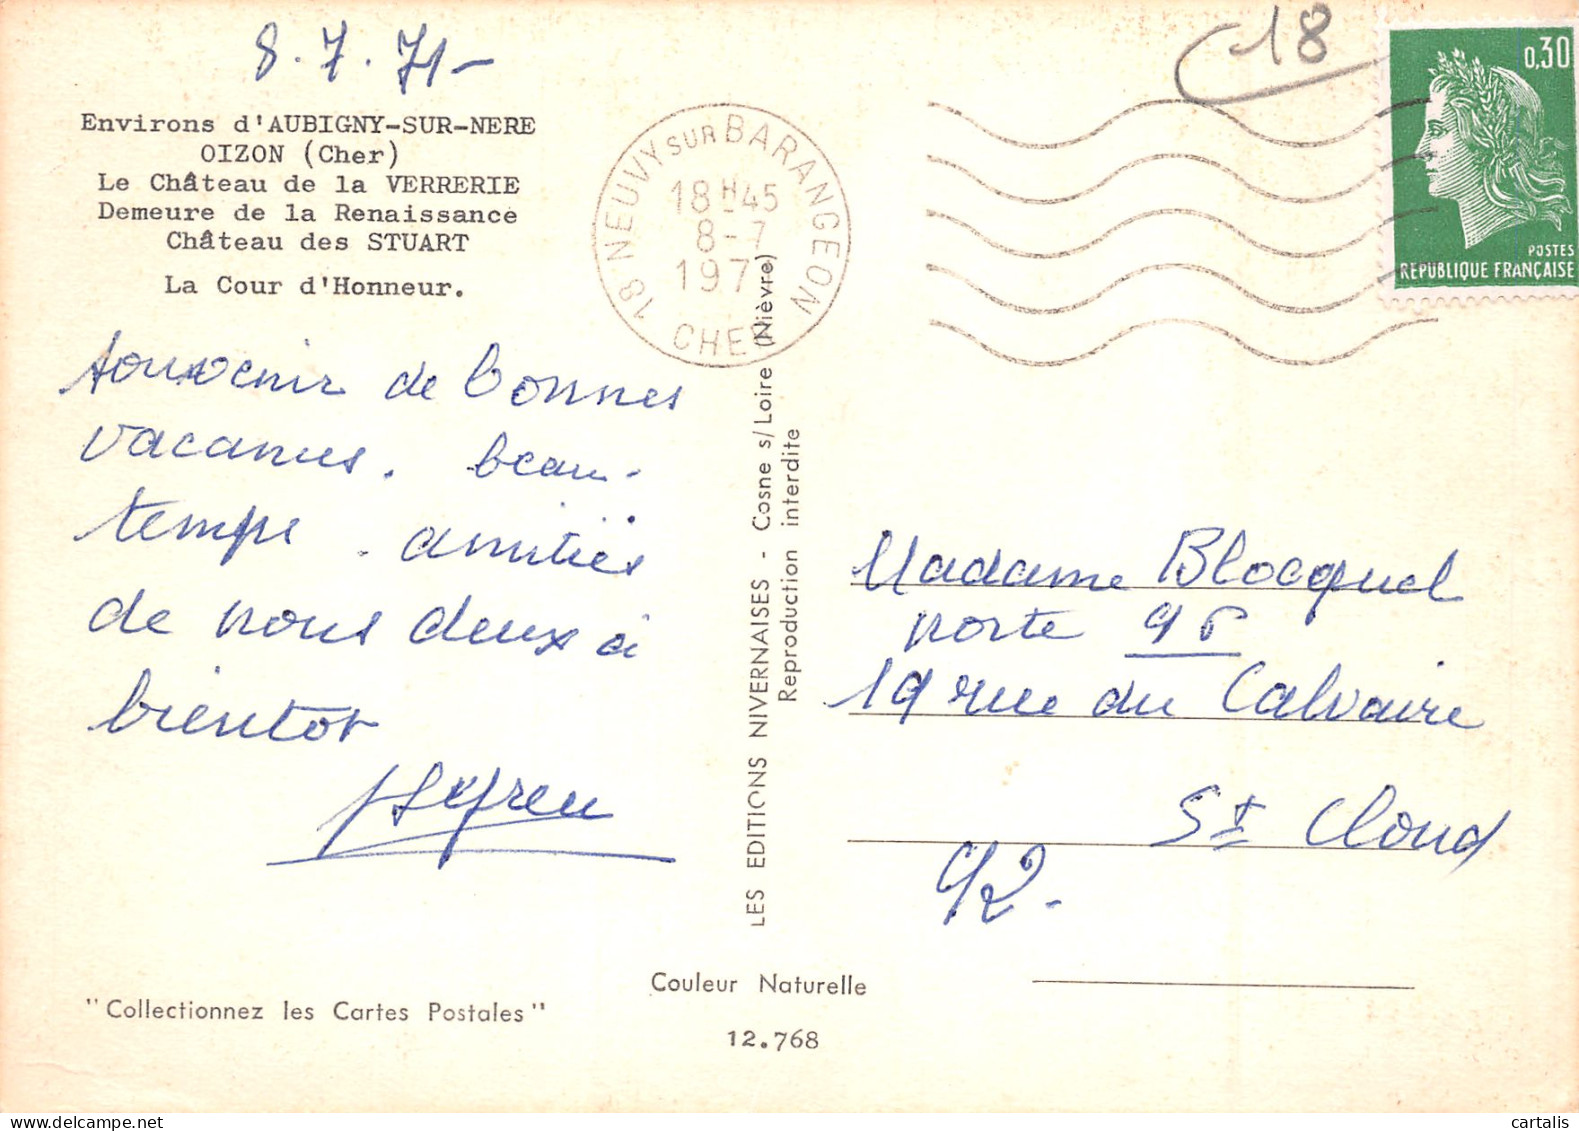 8.7.71-
Environs d'AUBIGNY-SUR-NERE
OIZON (Cher)
Le Château de la VERRERIE
Demeure de la Renaissance
Château des STUART
La Cour d'Honneur.
souvenir de bonnes
vacances. beau-
temps. amitiés
de nous deux à
bientot
"Collectionnez les Cartes Postales"
18 NEUVY SUR BARANGEON
18H45
8-7
197
CHER
LES EDITIONS NIVERNAISES - Cosne s/Loire (Nièvre)
Reproduction interdite
Couleur Naturelle
12.768
18
0,30
POSTES
REPUBLIQUE FRANÇAISE
Madame Blocquel
porte
19 rue du Calvaire
St Cloud
92-
cartalis